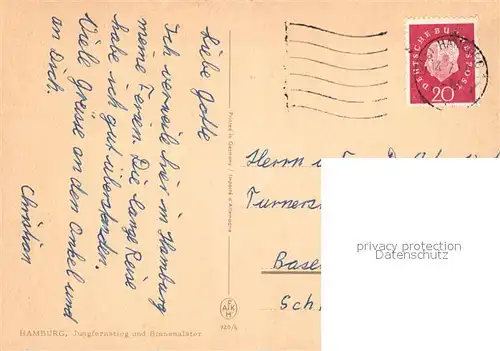 Liebe Gotte
Ich verweile hier in Hamburg
meine Ferien. Die lange Reise
habe ich gut überstanden.
Viele Grüsse an den Onkel und
an Dich.
Christian
Printed in Germany / Imprimé d'Allemagne
AKH
HAMBURG, Jungfernstieg und Binnenalster
DEUTSCHE BUNDESPOST
20
Herrn u.
Turners
Base
Sch
privacy protection
Datenschutz